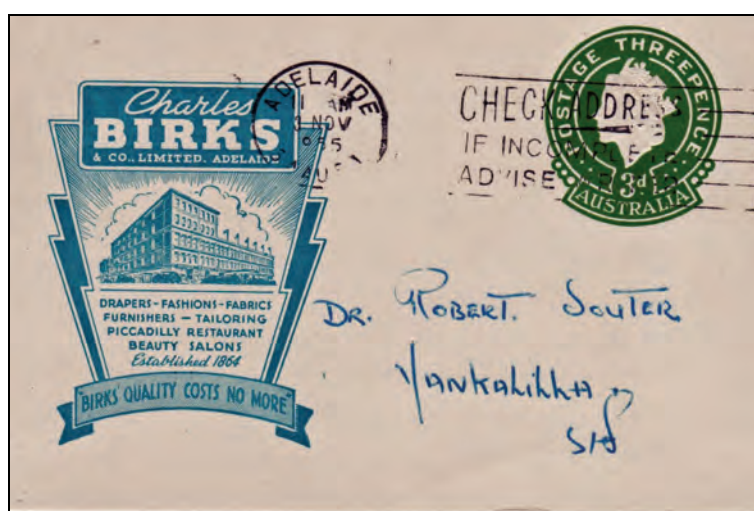 Charles
BIRKS
& CO., LIMITED. ADELAIDE
DRAPERS-FASHIONS-FABRICS
FURNISHERS — TAILORING
PICCADILLY RESTAURANT
BEAUTY SALONS
Established 1864
"BIRKS' QUALITY COSTS NO MORE"
ADELAIDE
11 AM
NOV
CHECK ADDRESS
IF
ADVISE
POSTAGE THREEPENCE
3d
AUSTRALIA
DR. ROBERT. SOUTER
YANKALILLA
SA